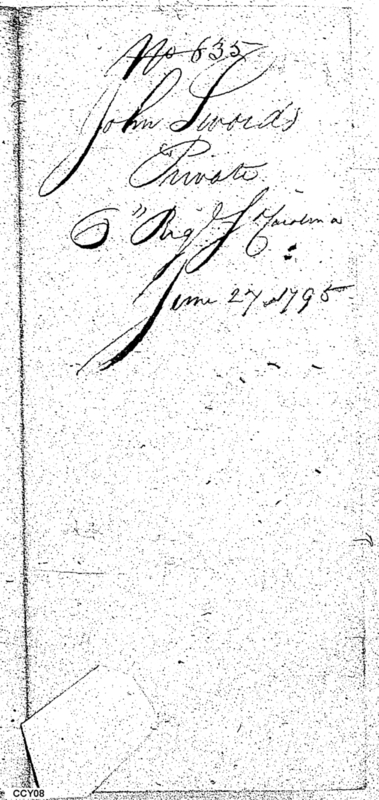 No 635
John Swords
Private
6" Reg't S Carolina
June 27 1795
CCY08